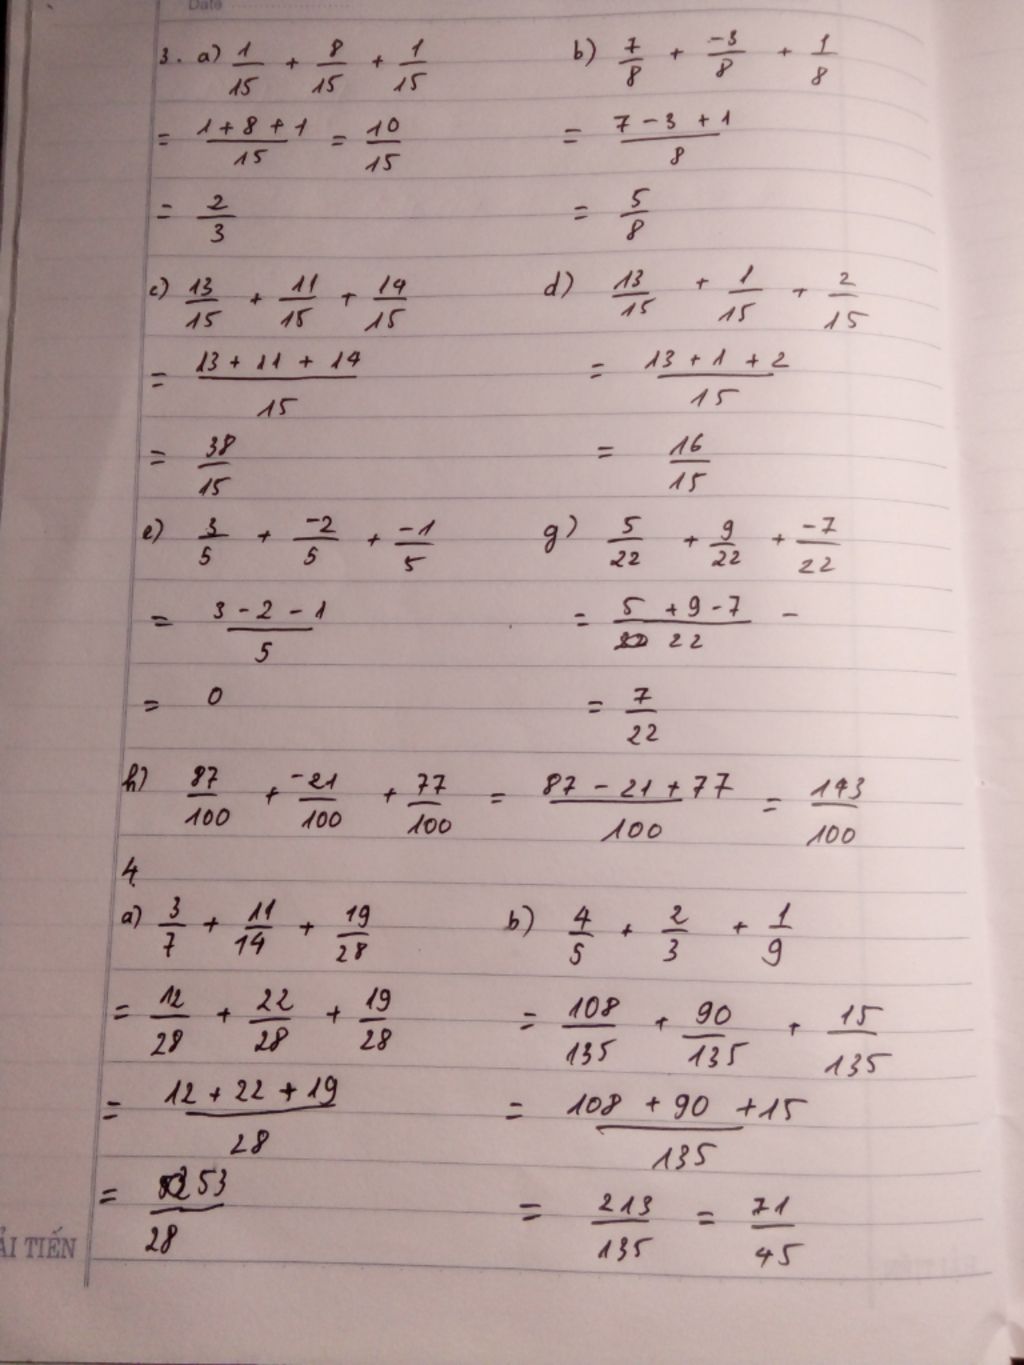 Date
3. a) 1/15 + 8/15 + 1/15
= (1 + 8 + 1)/15 = 10/15
= 2/3
b) 7/8 + -3/8 + 1/8
= (7 - 3 + 1)/8
= 5/8
c) 13/15 + 11/15 + 14/15
= (13 + 11 + 14)/15
= 38/15
d) 13/15 + 1/15 + 2/15
= (13 + 1 + 2)/15
= 16/15
e) 3/5 + -2/5 + -1/5
= (3 - 2 - 1)/5
= 0
g) 5/22 + 9/22 + -7/22
= (5 + 9 - 7)/22 -
= 7/22
h) 87/100 + -21/100 + 77/100 = (87 - 21 + 77)/100 = 143/100
4.
a) 3/7 + 11/14 + 19/28
= 12/28 + 22/28 + 19/28
= (12 + 22 + 19)/28
= 53/28
b) 4/5 + 2/3 + 1/9
= 108/135 + 90/135 + 15/135
= (108 + 90 + 15)/135
= 213/135 = 71/45
ẢI TIẾN